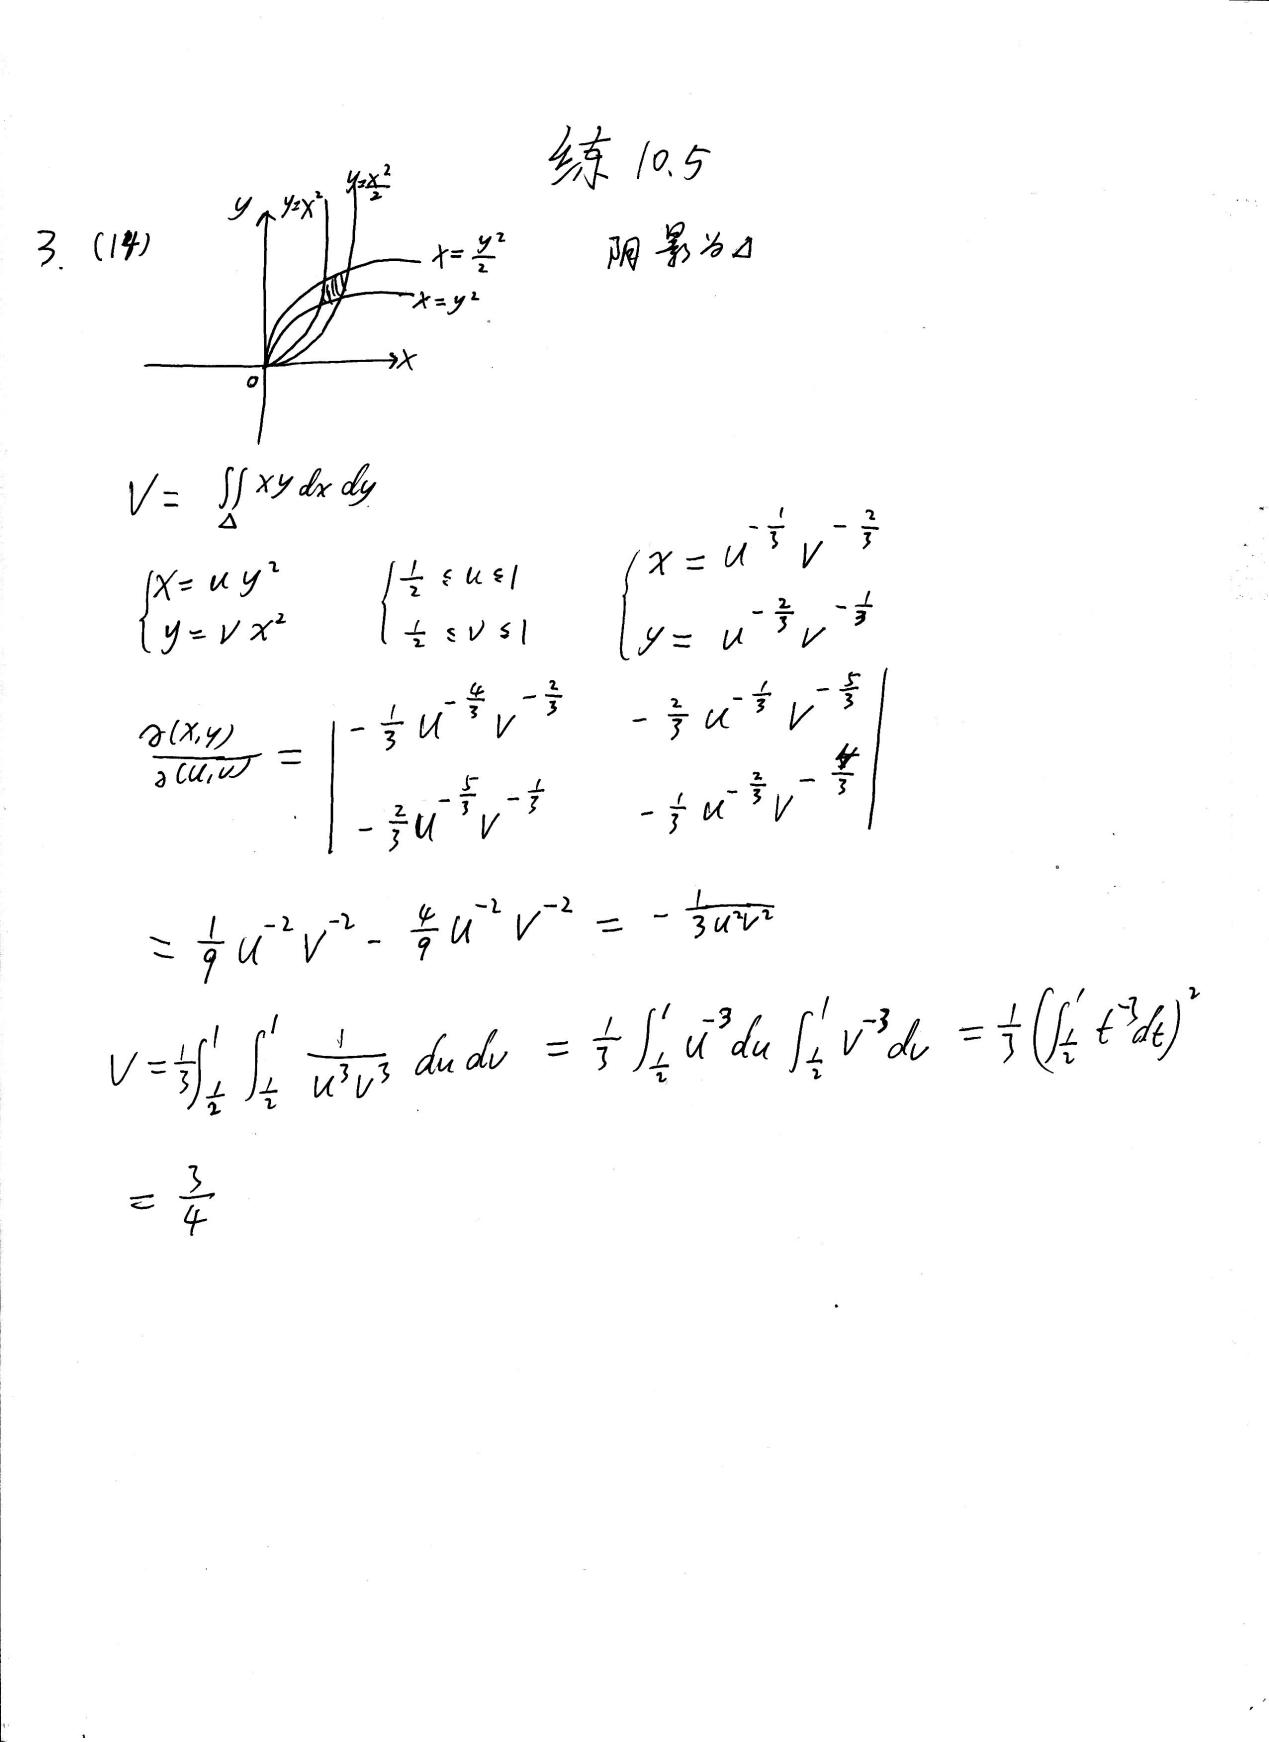 练 10.5
3. (14)
y
y=x²
y=x²/2
x=y²/2
x=y²
x
0
阴影为Δ
V = ∬_Δ xy dx dy
{x = u y²
y = v x²
{1/2 ≤ u ≤ 1
1/2 ≤ v ≤ 1
{x = u^(-1/3) v^(-2/3)
y = u^(-2/3) v^(-1/3)
∂(x,y)/∂(u,v) = | -1/3 u^(-4/3) v^(-2/3)   -2/3 u^(-1/3) v^(-5/3) |
| -2/3 u^(-5/3) v^(-1/3)   -1/3 u^(-2/3) v^(-4/3) |
= 1/9 u^(-2) v^(-2) - 4/9 u^(-2) v^(-2) = - 1/(3u²v²)
V = 1/3 ∫_(1/2)^1 ∫_(1/2)^1 1/(u³v³) du dv = 1/3 ∫_(1/2)^1 u^(-3) du ∫_(1/2)^1 v^(-3) dv = 1/3 (∫_(1/2)^1 t^(-3) dt)²
= 3/4